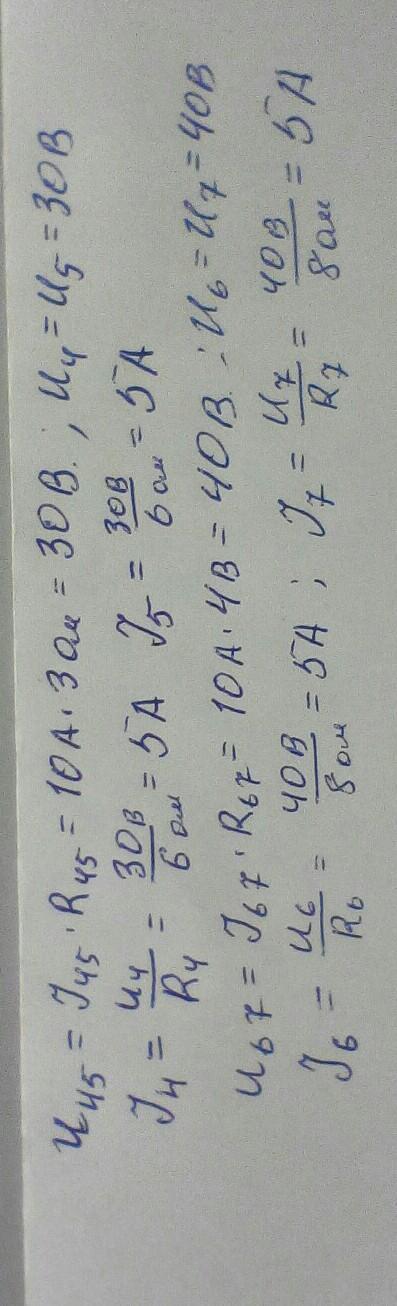 U45 = J45 · R45 = 10А · 3 Ом = 30В. ; U4 = U5 = 30В
J4 = U4/R4 = 30В/6 ом = 5А J5 = 30В/6 ом = 5А
U67 = J67 · R67 = 10А · 4В = 40В. ; U6 = U7 = 40В
J6 = U6/R6 = 40В/8 ом = 5А ; J7 = U7/R7 = 40В/8 ом = 5А